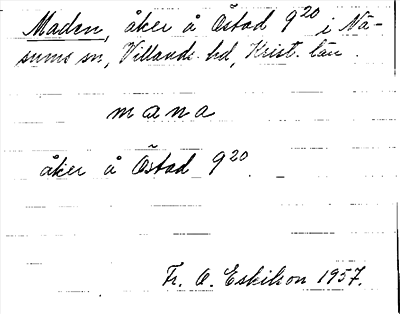 Maden, åker å Östad 9²⁰ i Nä-
sums sn, Villands hd, Krist. län.
mana
åker å Östad 9²⁰
Fr. O. Eskilson 1957.